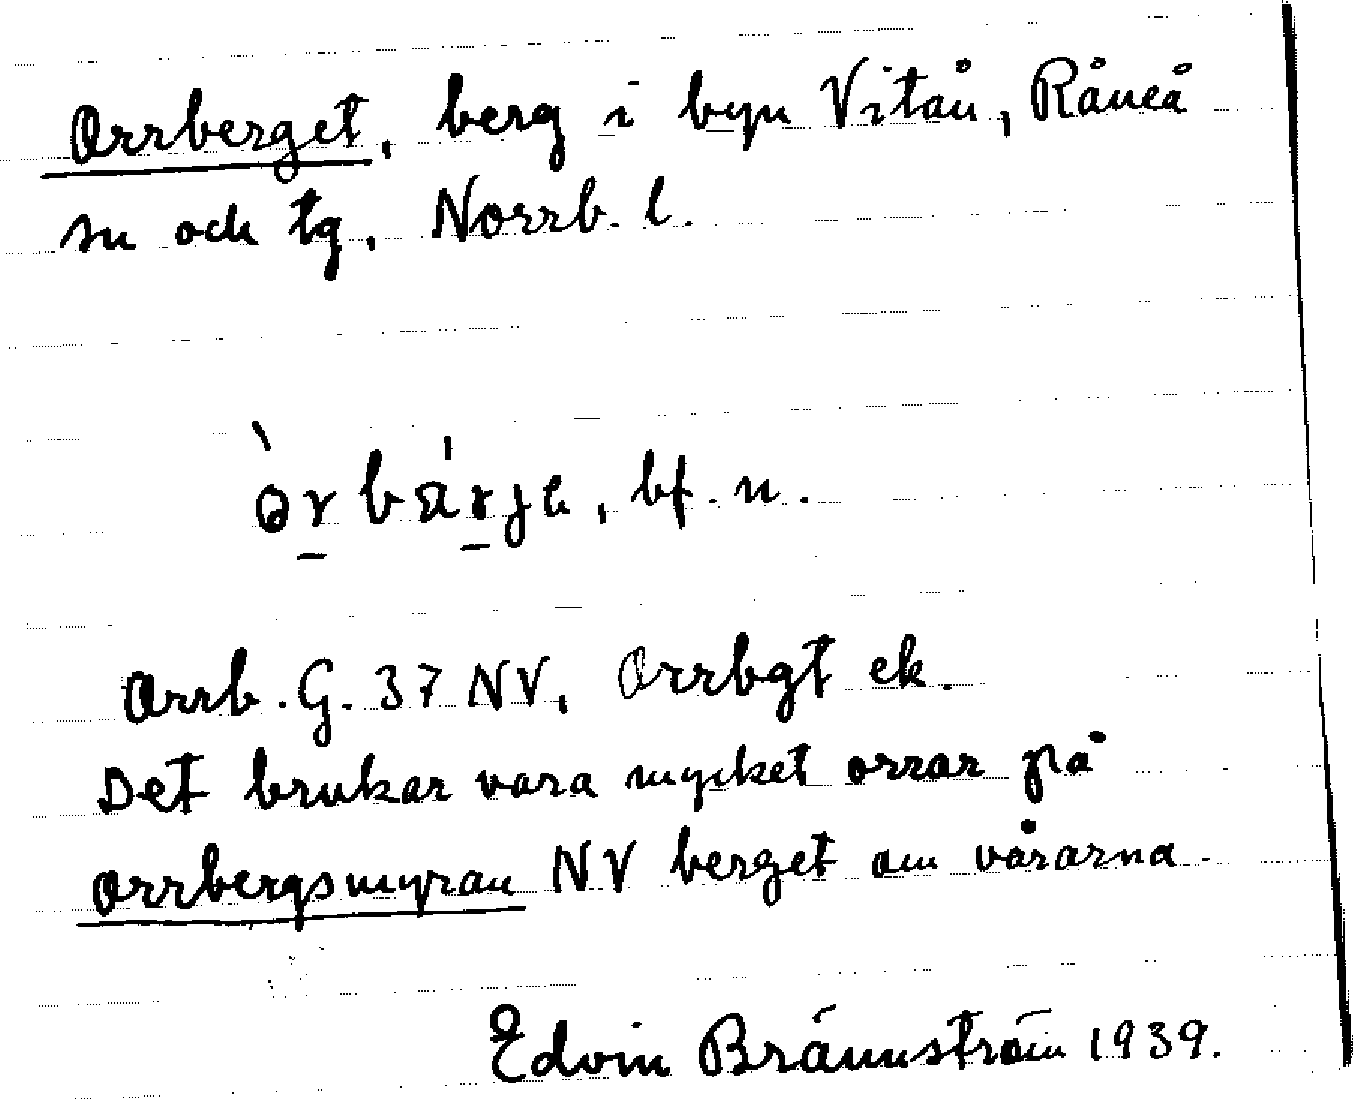 Orrberget, berg i byn Vitån, Råneå
sn och tg, Norrb. l.
bf. n.
Orrb. G. 37 NV, Orrbgt ek.
Det brukar vara mycket orrar på
Orrbergsmyran NV berget om vårarna
Edvin Brännström 1939.